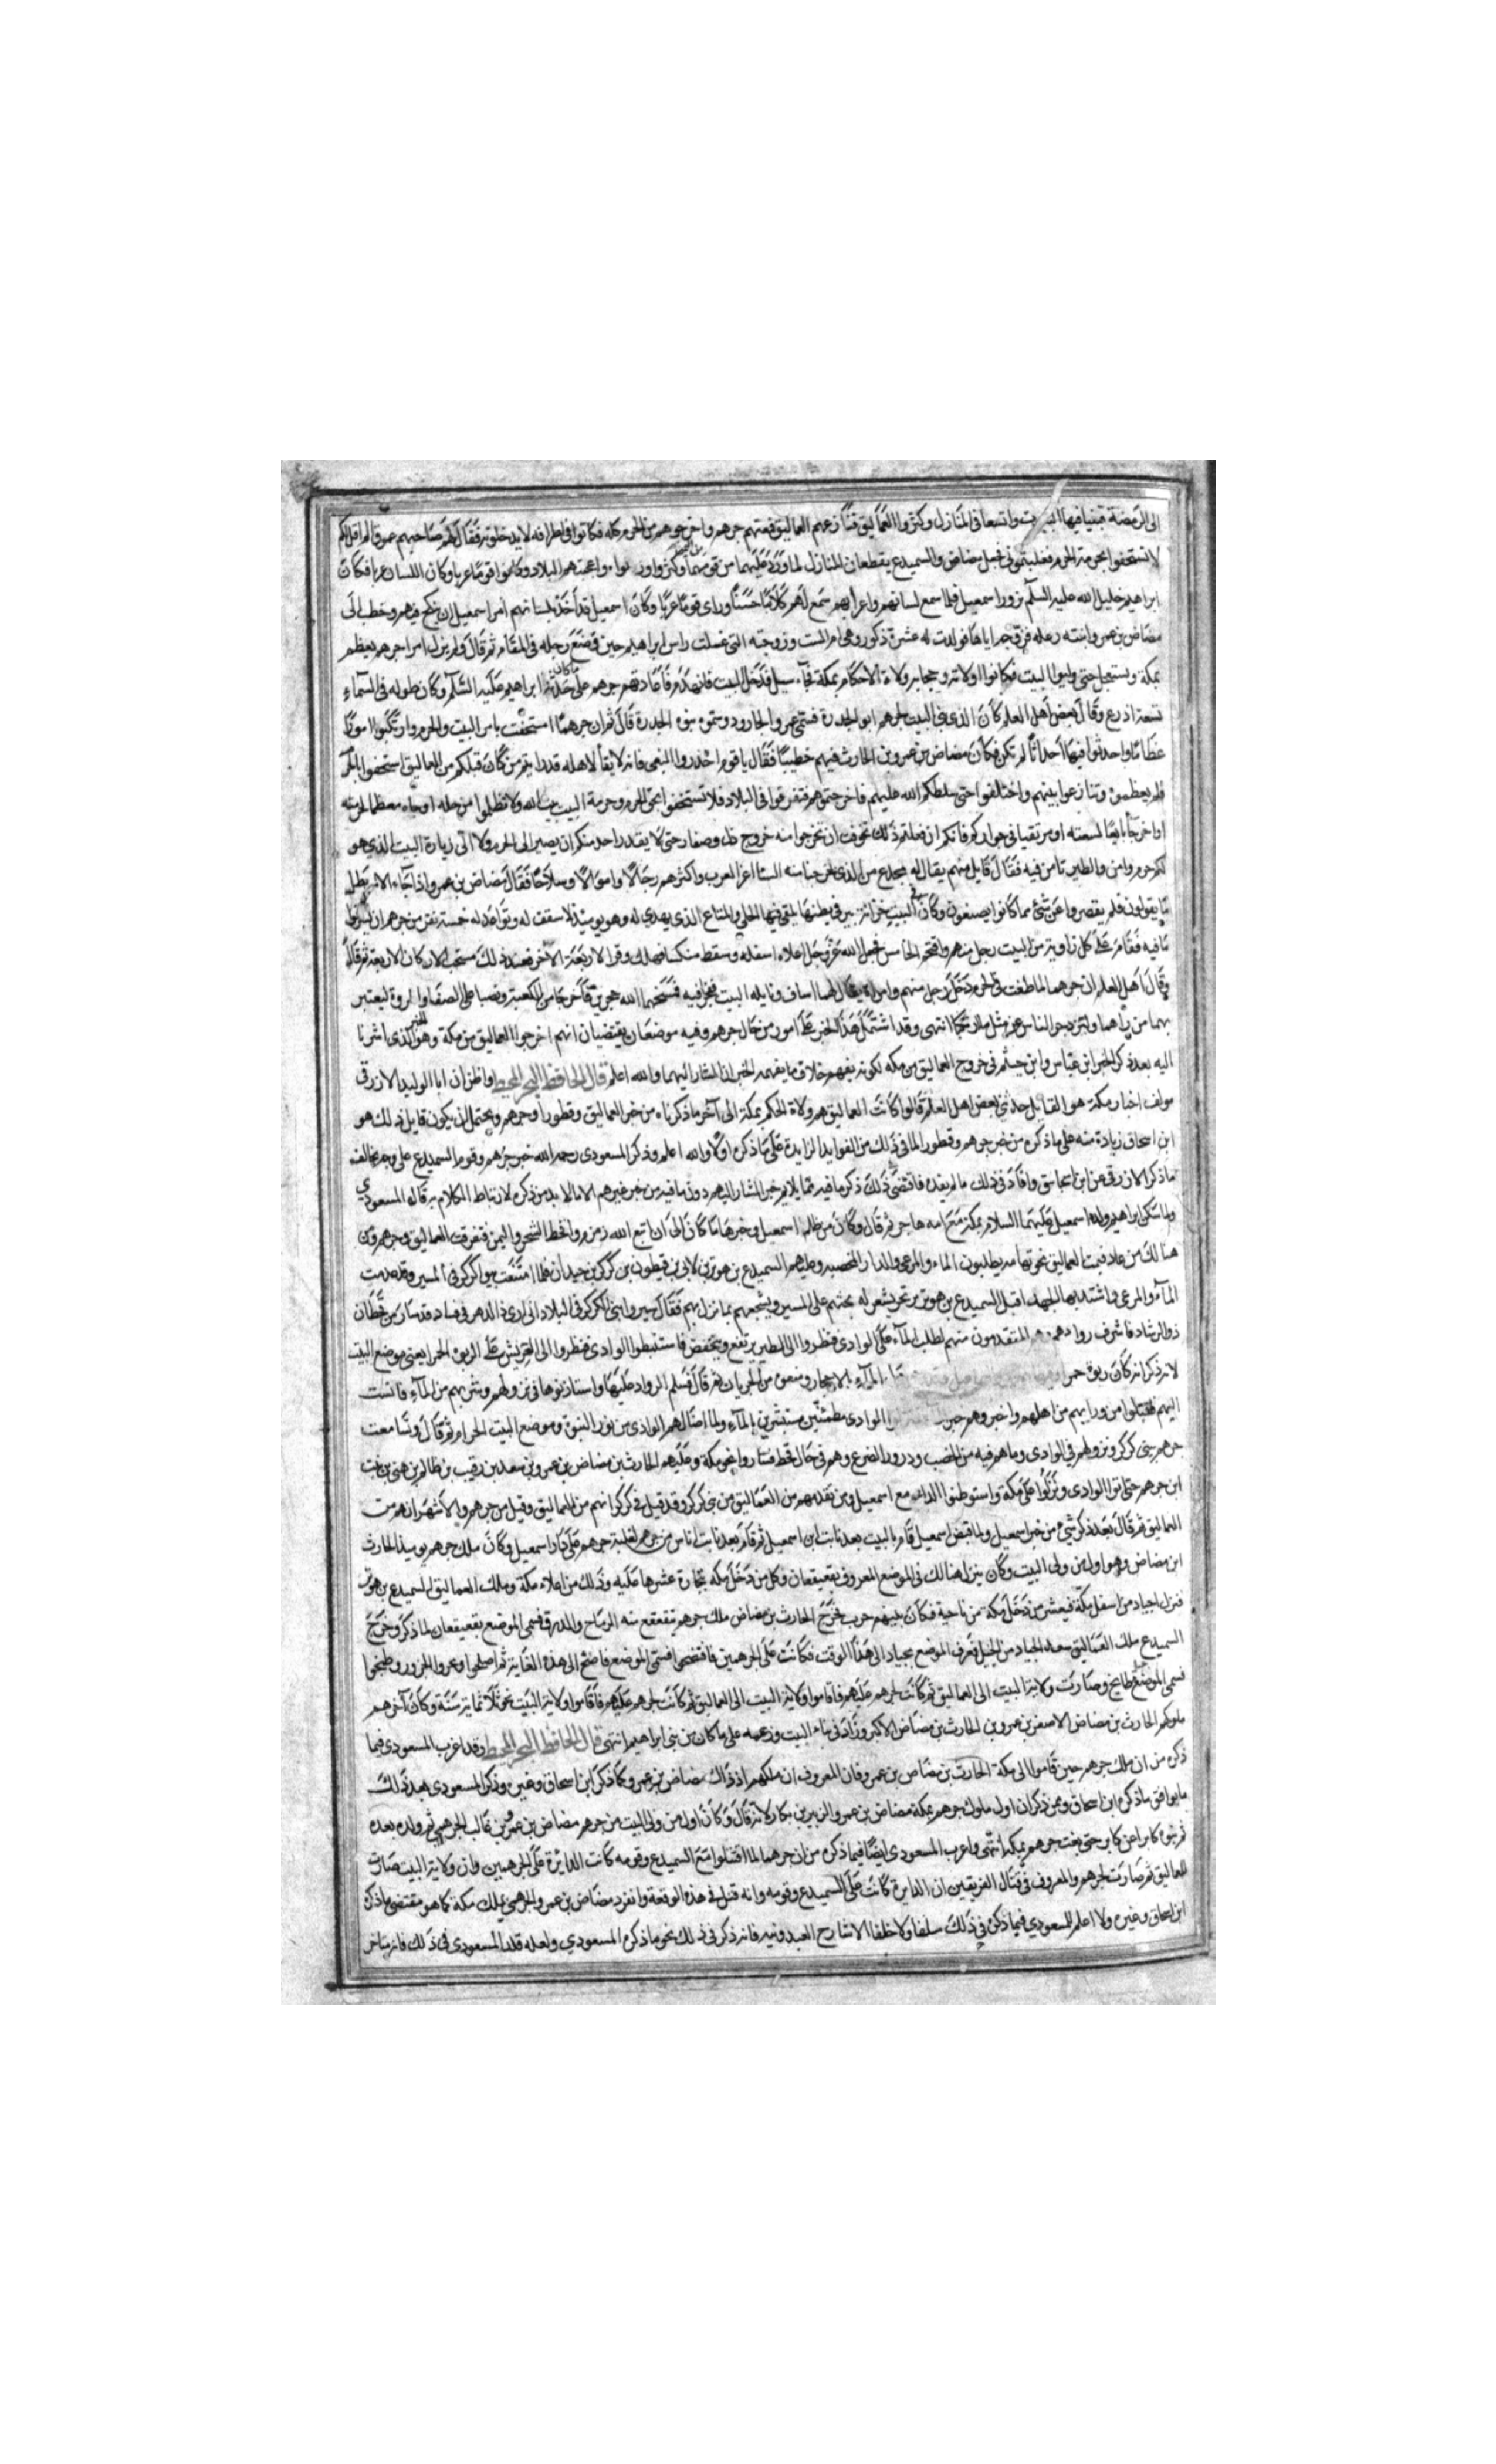 الى الرمضة فبنيا فيها البيوت واتسعا في المنازل وكثروا العماليق فنازعهم العماليق فمنعتهم جرهم واخرجوهم من الحرم كله فكانوا في اطرافه لا يدخلونه فقال لهم صاحبهم عمرو الم اقل لكم
لا تستخفوا بحرمة الحرم فغلبتموني فجعل مضاض والسميدع يقطعان المنازل لما ورد عليهما من قومهما وكثروا واعجبتهم البلاد وكانوا قوما عربا وكان اللسان عربيا فكان
ابراهيم خليل الله عليه السلم يزور اسمعيل فلما سمع لسانهم واعرابهم سمع لهم كلاما حسنا وراى قوما عربا وكان اسمعيل قد اخذ بلسانهم امر اسمعيل ان ينكح فيهم فخطب الى
مضاض بن عمرو ابنته رعله فزوجه اياها فولدت له عشرة ذكور وهي ام البيت وزوجته التي غسلت راس ابراهيم حين وضع رجله في المقام ثم قال ولم يزل امر جرهم يعظم
بمكة ويستفحل حتى وليوا البيت فكانوا ولاته وحجابه وولاة الاحكام بمكة فجاء سيل فدخل البيت فانهدم فاعادته جرهم على ما كان بناء ابراهيم عليه السلم وكان طوله في السماء
تسعة اذرع وقال بعض اهل العلم كان الذي بنى البيت لجرهم ابو الجدرة فسمى عمرو الجارود وسموه بنوه الجدرة قال ثم ان جرهما استخفت بامر البيت والحرم وارتكبوا امورا
عظاما واحدثوا فيها احداثا لم تكن فكان مضاض بن عمرو بن الحارث فيهم خطيبا فقال يا قوم احذروا البغي فانه لا بقا لاهله قد رايتم من كان قبلكم من العماليق استخفوا بالحرم
فلم يعظموه وتنازعوا بينهم واختلفوا حتى سلطكم الله عليهم فاخرجتموهم فتفرقوا في البلاد فلا تستخفوا بحق الحرم وحرمة البيت بيت الله ولا تظلموا من دخله او جاء معظما لحرمته
او اخر جاء بايعا لسلعته او مرتقيا في جواركم فانكم ان فعلتم ذلك تخوفت ان تخرجوا منه خروج ذل وصغار حتى لا يقدر احد منكم ان يصير الى الحرم ولا الى زيارة البيت الذي هو
لكم حرم وامن والطير تامن فيه فقال قايل منهم يقال له مجدع من الذي يخرجنا منه السنا اعز العرب واكثرهم رجالا واموالا وسلاحا فقال مضاض بن عمرو اذا جاء الامر بطل
ما يقولون فلم يقصروا عن شئ مما كانوا يصنعون وكان في البيت خزانة بير في بطنها يلقى فيها الحلي والمتاع الذي يهدى له وهو يوميذ لا سقف له وتواعد له خمسة نفر من جرهم ان يسرقوا
ما فيه فقام على كل زاوية من البيت رجل منهم واقتحم الخامس فجعل الله عز وجل اعلاه اسفله وسقط منكسا فهلك وفر الاربعة الاخر فعند ذلك مستحب الاركان الاربعة ثم قال
وقال اهل العلم ان جرهما لما طغت في الحرم دخل رجل منهم وامراة يقال لهما اساف ونايله البيت ففجرا فيه فمسخهما الله حجرين فاخرجا من الكعبة ونصبا على الصفا والمروة ليعتبر
بهما من راهما وليزدجر الناس عن مثل ما ارتكبا انتهى وقد اشتمل هذا الخبر على امور من حال جرهم وفيه موضعان يقتضيان انهم اخرجوا العماليق من مكة وهو الذي اشرنا
اليه بعد ذكر الخبر ابن عباس وابن خيثم في خروج العماليق من مكه لكونه يفهم خلاف ما يفهمه الخبران المشار اليهما والله اعلم قال الحافظ البحر المحيط واظن ان ابا الوليد الازرقي
مولف اخبار مكة هو القايل حدثني بعض اهل العلم قالوا كانت العماليق هم ولاة الحكم بمكة الى آخر ما ذكرناه من خبر العماليق وقطورا وجرهم ويحتمل ان يكون قايل ذلك هو
ابن اسحاق زيادة منه على ما ذكره من خبر جرهم وقطورا لما في ذلك من الفوايد الزايدة على ما ذكره اولا والله اعلم وذكر المسعودي رحمه الله خبر جرهم وقوم السميدع على وجه يخالف
ما ذكر الازرقي عن ابن اسحاق وافاد في ذلك ما لم يفده فاقتضى ذلك ذكر ما فيه مما يلايم خبر المشار اليهم دون ما فيه من خبر غيرهم الا ما لا بد من ذكره لارتباط الكلام به قال المسعودي
ولما سكن ابراهيم ولده اسمعيل عليهما السلام بمكة مع امه هاجر ثم قال وكان من حال اسمعيل وخبرهما ما كان الى ان انبع الله زمزم واقحط الشحر واليمن فتفرقت العماليق وجرهم ومن
هنالك من عاد فيممت العماليق نحو تهامه يطلبون الماء والمرعى والدار المخصبه وعليهم السميدع بن هوبر بن لاي بن قيطون بن كركر بن حيدان فلما امعنت بنو كركر في المسير وقد عدمت
الماء والمرعى واشتد بها الجهد اقبل السميدع بن هوبر يرتجز بشعر له يحثهم على المسير ويشجعهم بما نزل بهم فقال سيروا بني الكركر في البلاد اني ارى ذا الدهر في فساد قد سار من قحطان
ذو الرشاد فاشرف روادهم المتقدمون منهم لطلب الماء على الوادي فنظروا الى الطير يرتفع وينخفض فاستبطوا الوادي فنظروا الى العريش على الربوه الحمرا يعني موضع البيت
لانه ذكر انه كان ربوة حمرا الماء بالاحجار ومنعه من الجريان ثم قال فسلم الرواد عليها واستاذنوها في نزولهم وشربهم من الماء فانست
اليهم فتلقوا من ورايهم من اهلهم واخبروهم خبر الوادي مطمئنين مستبشرين بالماء ولما اضا لهم الوادي من نور النبوة وموضع البيت الحرام ثم قال وتسامعت
جرهم ببني كركر ونزولهم في الوادي وما هم فيه من الخصب ودرور الضرع وهم في حال قحط فساروا نحو مكة وعليهم الحارث بن مضاض بن عمرو بن سعد بن رقيب بن ظالم بن هني بن نبت
ابن جرهم حتى اتوا الوادي ونزلوا على مكة واستوطنوا الدار مع اسمعيل ومن تقدمهم من العماليق من بني كركر وقد قيل في كركر انهم من العماليق وقيل من جرهم والاشهر انهم من
العماليق ثم قال بعد ذكر شئ من خبر اسمعيل ولما قبض اسمعيل قام بالبيت بعده نابت ابن اسمعيل ثم قام بعد نابت اناس من جرهم لغلبة جرهم على دار اسمعيل وكان ملك جرهم يوميذ الحارث
ابن مضاض وهو اول من ولي البيت وكان ينزل هنالك في الموضع المعروف بقعيقعان وكل من دخل مكه بتجارة عشرها عليه وذلك من اعلاء مكة وملك العماليق السميدع بن هوبر
فنزل اجياد من اسفل مكة فيعشر من دخل مكة من ناحية فكان بينهم حرب فخرج الحارث بن مضاض ملك جرهم يتقعقع منه الرماح والدرق فسمي الموضع بقعيقعان لما ذكر وخرج
السميدع ملك العماليق معه الجياد من الخيل فعرف الموضع بجياد الى هذا الوقت فكانت على الجرهميين فافتضحوا فسمي الموضع فاضح الى هذه الغاية ثم اصطلحوا ونحروا الجزور وطبخوا
فسمى الموضع طابخ وصارت ولاية البيت الى العماليق ثم كانت لجرهم عليهم فاقاموا ولاية البيت الى العماليق ثم كانت لجرهم عليهم فاقاموا ولاية البيت نحو ثلاثماية سنة وكان آخرهم
ملوكهم الحارث بن مضاض الاصغر بن عمرو بن الحارث بن مضاض الاكبر وزاد في بناء البيت ورفعه على ما كان من بنى ابراهيم انتهى قال الحافظ البحر المحيط وقد اغرب المسعودي فيما
ذكره من ان ملك جرهم حين قاموا الى مكة الحارث بن مضاض بن عمرو فان المعروف ان ملكهم اذ ذاك مضاض بن عمرو كما ذكر ابن اسحاق وغيره وذكر المسعودي بعد ذلك
ما يوافق ما ذكره ابن اسحاق وممن ذكر ان اول ملوك جرهم بمكة مضاض بن عمرو الزبير بن بكار لانه قال وكان اول من ولي البيت من جرهم مضاض بن عمرو بن غالب الجرهمي ثم ولده بعده
ثم بنوه كابرا عن كابر حتى بغت جرهم بمكة انتهى واغرب المسعودي ايضا فيما ذكره من ان جرهما لما اقتتلوا مع السميدع وقومه كانت الدائرة على الجرهميين وان ولاية البيت صارت
للعماليق ثم صارت لجرهم والمعروف في قتال الفريقين ان الدايرة كانت على السميدع وقومه وانه قتل في هذه الوقعة وانفرد مضاض بن عمرو الجرهمي بملك مكة كما هو مقتضى ما ذكره
ابن اسحاق وغيره ولا اعلم للمسعودي فيما ذكره في ذلك سلفا ولا خلفا الا شارح العبدونيه فانه ذكر في ذلك نحو ما ذكره المسعودي ولعله قلد المسعودي في ذلك فانه متاخر